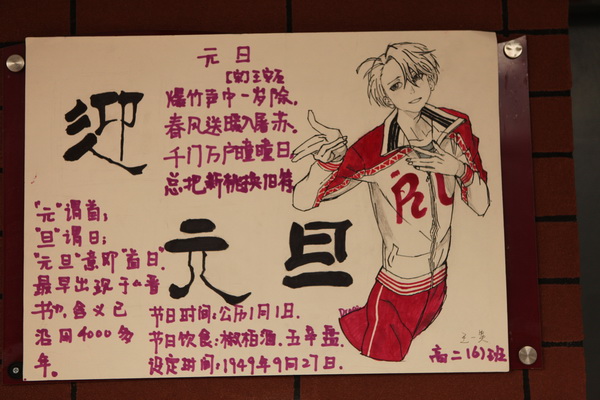 元旦
[宋]王安石
爆竹声中一岁除。
春风送暖入屠苏。
千门万户曈曈日。
总把新桃换旧符
迎
元旦
"元"谓首;
"旦"谓日;
"元旦"意即"首日".
最早出现于《晋
书》,含义已
沿用4000多
年。
节日时间:公历1月1日.
节日饮食:椒柏酒、五辛盘.
设定时间:1949年9月27日.
高二(6)班